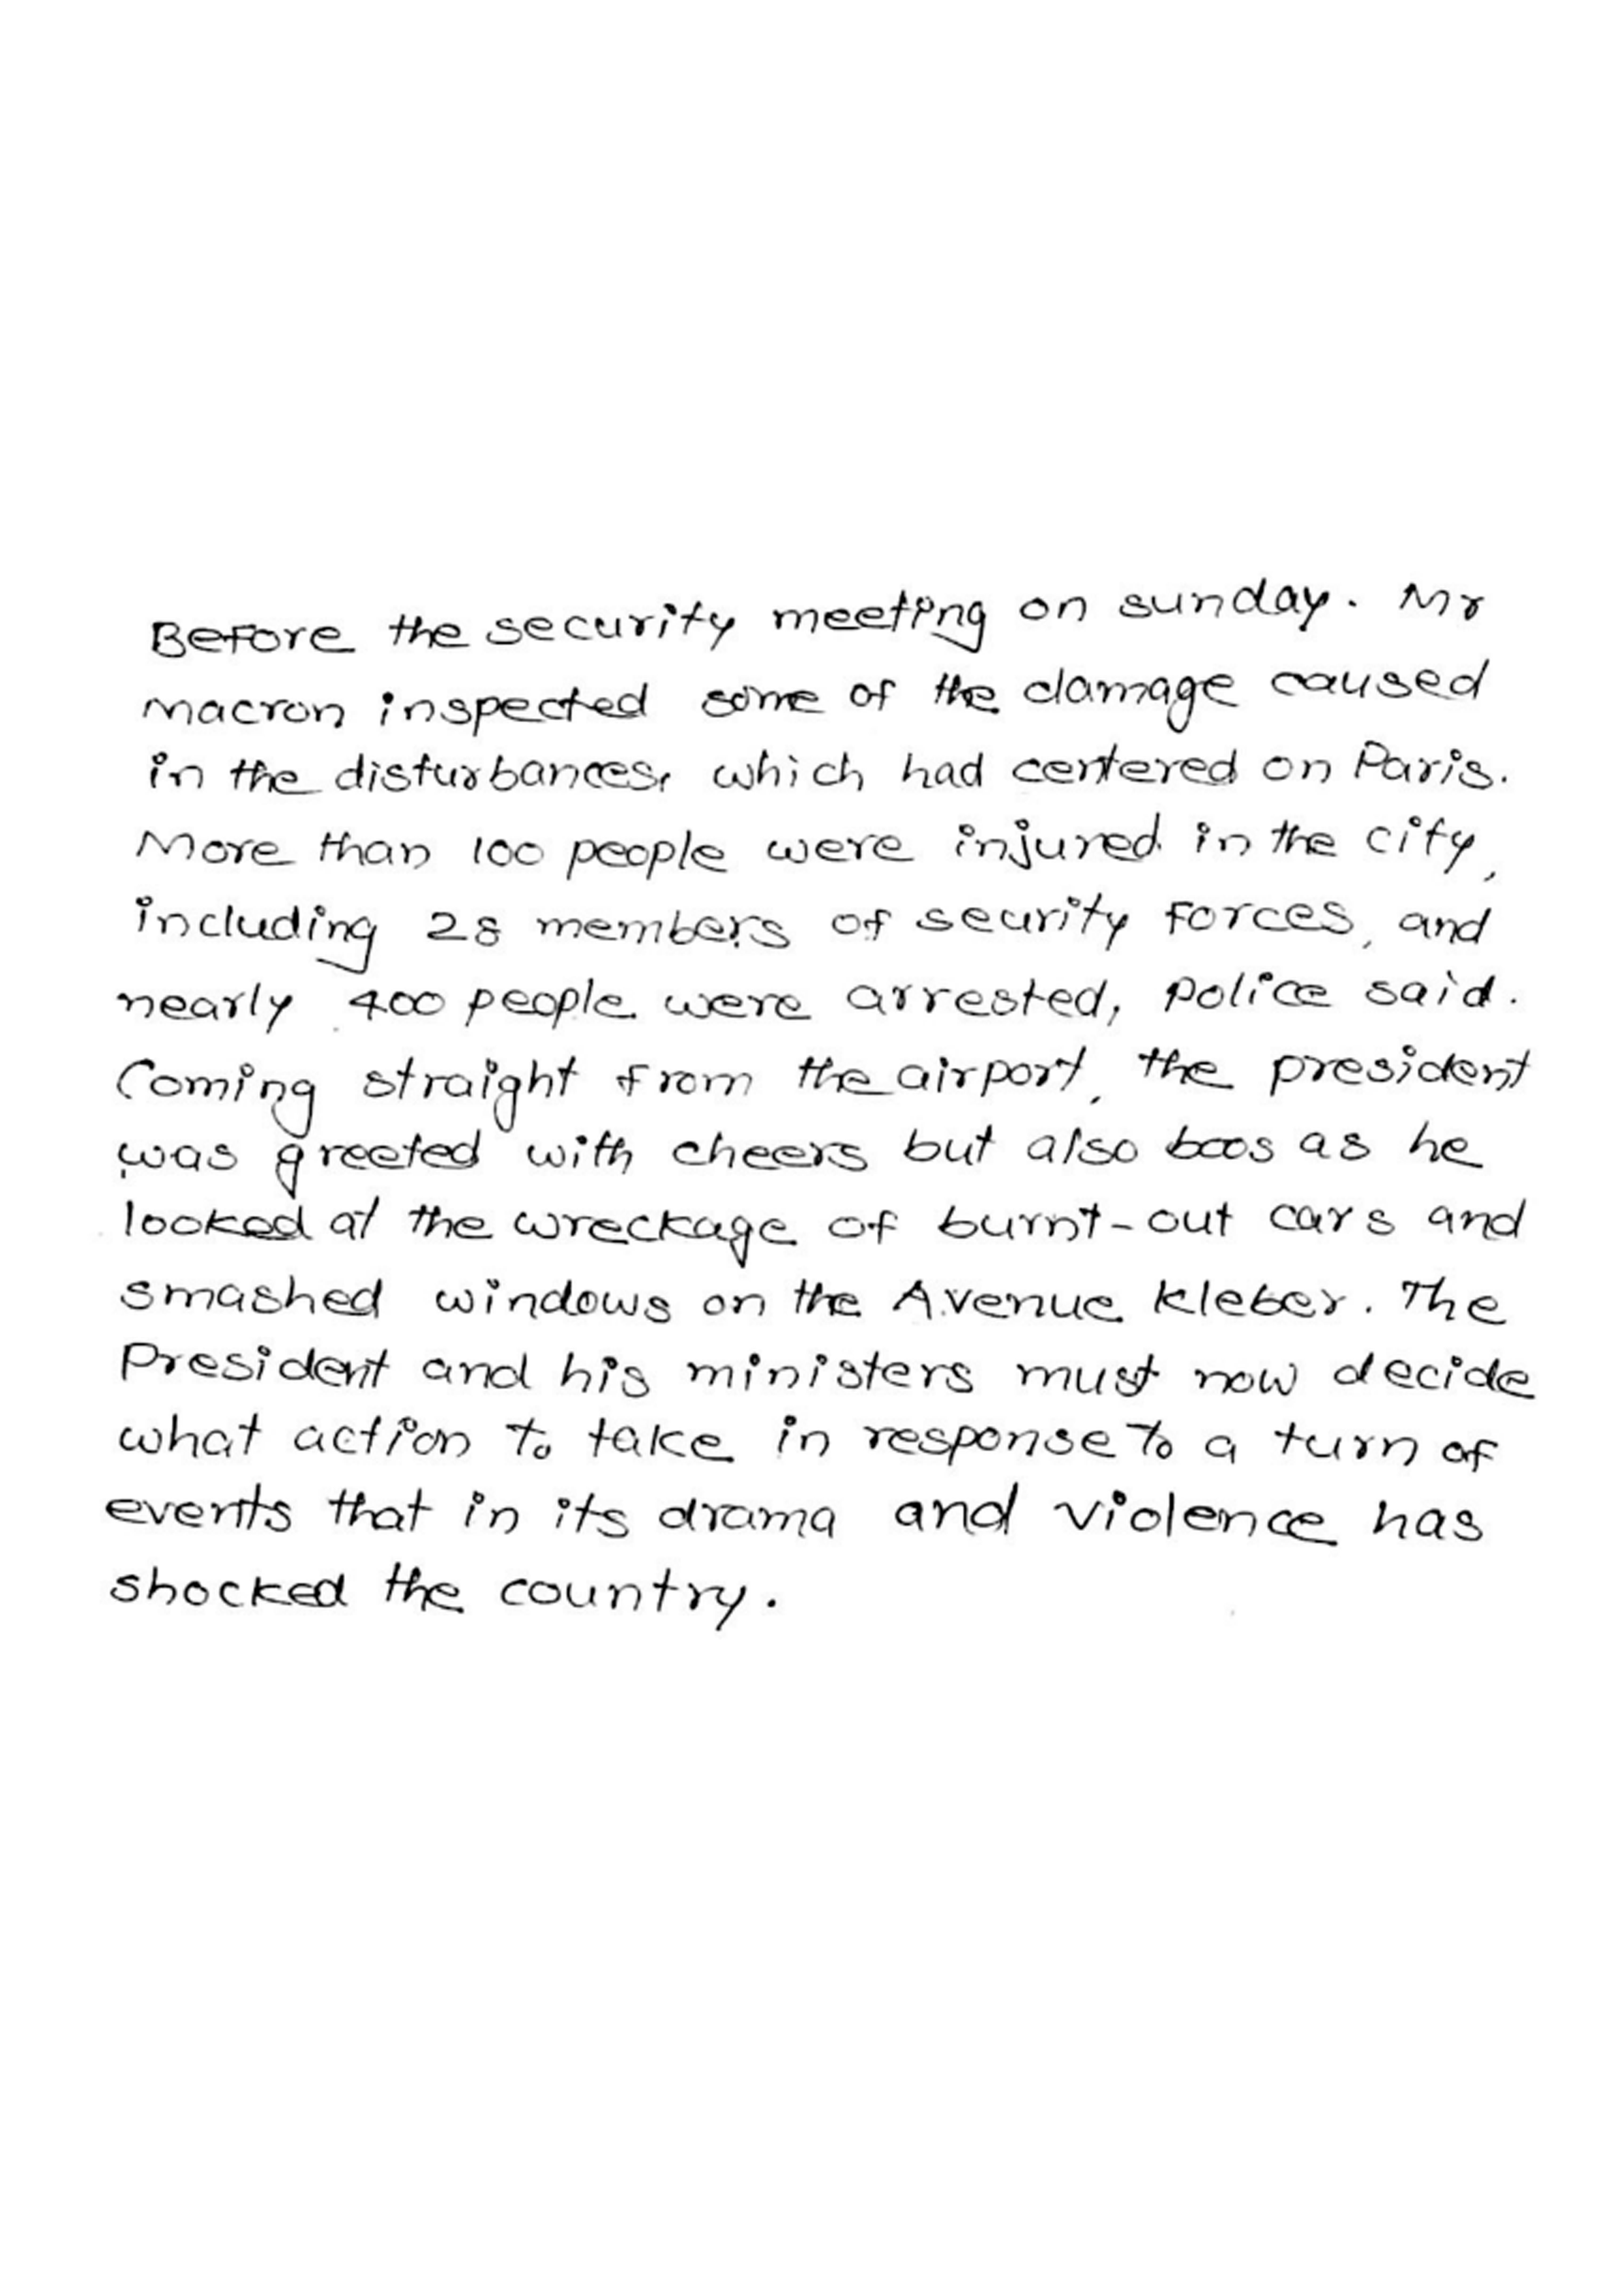 Before the security meeting on sunday. Mr
macron inspected some of the damage caused
in the disturbances, which had centered on Paris.
More than 100 people were injured in the city,
including 28 members of security forces, and
nearly 400 people were arrested, police said.
Coming straight from the airport, the president
was greeted with cheers but also boos as he
looked at the wreckage of burnt-out cars and
smashed windows on the Avenue Kleber. The
President and his ministers must now decide
what action to take in response to a turn of
events that in its drama and violence has
shocked the country.